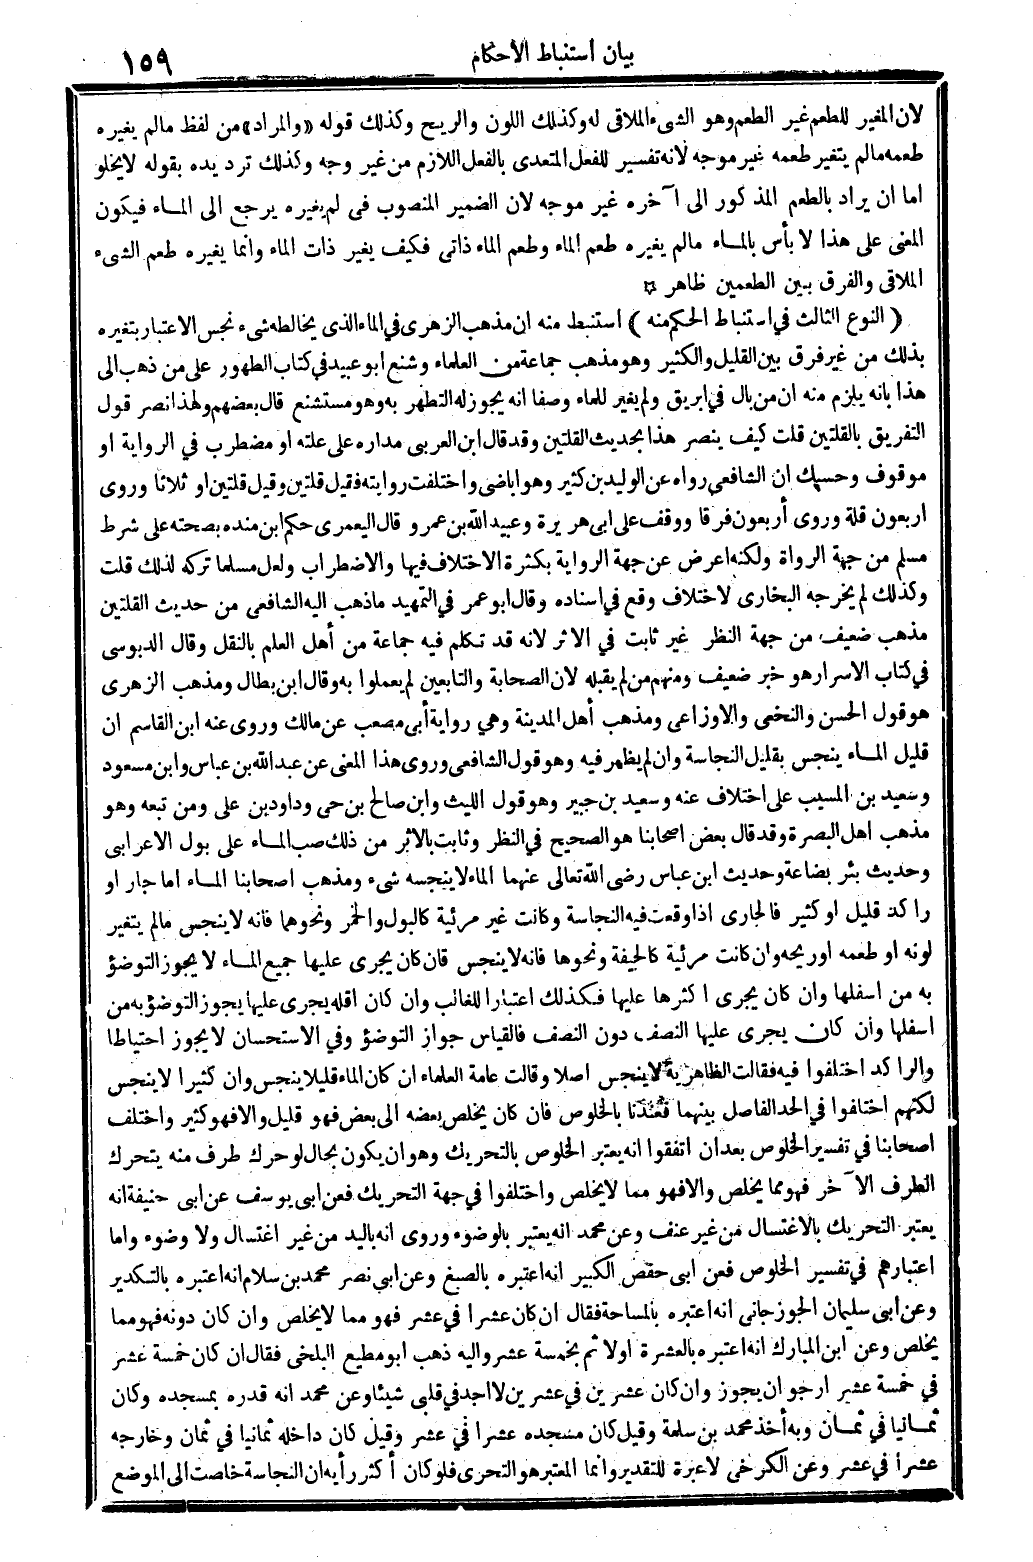 بيان أستنباط الأحكام ١٥٩
لان المغير للطعم غير الطعم وهو الشىء الملاقى له وكذلك اللون والريح وكذلك قوله «والمراد» من لفظ مالم يغيره
طعمه مالم يتغير طعمه غير موجه لانه تفسير للفعل المتعدى بالفعل اللازم من غير وجه وكذلك ترديده بقوله لايخلو
اما ان يراد بالطعم المذكور الى آخره غير موجه لان الضمير المنصوب فى لم يغيره يرجع الى المـاء فيكون
المعنى على هذا لا بأس بالمـاء مالم يغيره طعم الماء وطعم الماء ذاتى فكيف يغير ذات الماء وانما يغيره طعم الشىء
الملاقى والفرق بين الطعمين ظاهر ¤
( النوع الثالث في استنباط الحكم منه ) استنبط منه ان مذهب الزهرى في الماء الذى يخالطه شىء نجس الاعتبار بتغيره
بذلك من غير فرق بين القليل والكثير وهو مذهب جماعة من العلماء وشنع ابو عبيد في كتاب الطهور على من ذهب الى
هذا بانه يلزم منه ان من بال في ابريق ولم يغير للماء وصفا انه يجوز له التطهر به وهو مستشنع قال بعضهم ولهذا نصر قول
التفريق بالقلتين قلت كيف ينصر هذا بحديث القلتين وقد قال ابن العربى مداره على علته او مضطرب في الرواية او
موقوف وحسبك ان الشافعى رواه عن الوليد بن كثير وهو اباضى واختلفت روايته فقيل قلتين وقيل قلتين او ثلاثا وروى
اربعون قلة وروى أربعون فرقا ووقف على ابى هريرة وعبيد الله بن عمرو قال اليعمرى حكم ابن منده بصحته على شرط
مسلم من جهة الرواة ولكنه اعرض عن جهة الرواية بكثرة الاختلاف فيها والاضطراب ولعل مسلما تركه لذلك قلت
وكذلك لم يخرجه البخارى لاختلاف وقع في اسناده وقال ابو عمر في التمهيد ماذهب اليه الشافعى من حديث القلتين
مذهب ضعيف من جهة النظر غير ثابت في الاثر لانه قد تكلم فيه جماعة من أهل العلم بالنقل وقال الدبوسى
في كتاب الاسرار هو خبر ضعيف ومنهم من لم يقبله لان الصحابة والتابعين لم يعملوا به وقال ابن بطال ومذهب الزهرى
هو قول الحسن والنخعى والاوزاعى ومذهب أهل المدينة وهي رواية أبى مصعب عن مالك وروى عنه ابن القاسم ان
قليل المـاء ينجس بقليل النجاسة وان لم يظهر فيه وهو قول الشافعى وروى هذا المعنى عن عبدالله بن عباس وابن مسعود
وسعيد بن المسيب على اختلاف عنه وسعيد بن جبير وهو قول الليث وابن صالح بن حى وداود بن على ومن تبعه وهو
مذهب اهل البصرة وقد قال بعض اصحابنا هو الصحيح في النظر وثابت بالاثر من ذلك صب المـاء على بول الاعرابى
وحديث بئر بضاعة وحديث ابن عباس رضى الله تعالى عنهما الماء لاينجسه شىء ومذهب اصحابنا المـاء اما جار او
راكد قليل او كثير فالجارى اذا وقعت فيه النجاسة وكانت غير مرئية كالبول والخمر ونحوها فانه لاينجس مالم يتغير
لونه او طعمه اوريحه وان كانت مرئية كالجيفة ونحوها فانه لاينجس فان كان يجرى عليها جميع المـاء لا يجوز التوضؤ
به من اسفلها وان كان يجرى اكثرها عليها فكذلك اعتبارا للغالب وان كان اقله يجرى عليها يجوز التوضؤ به من
اسفلها وان كان يجرى عليها النصف دون النصف فالقياس جواز التوضؤ وفي الاستحسان لايجوز احتياطا
والراكد اختلفوا فيه فقالت الظاهرية لاينجس اصلا وقالت عامة العلماء ان كان الماء قليلا ينجس وان كثيرا لاينجس
لكنهم اختلفوا في الحد الفاصل بينهما فعندنا بالخلوص فان كان يخلص بعضه الى بعض فهو قليل والا فهو كثير واختلف
اصحابنا في تفسير الخلوص بعد ان اتفقوا انه يعتبر الخلوص بالتحريك وهو ان يكون بحال لو حرك طرف منه يتحرك
الطرف الآخر فهو مما يخلص والا فهو مما لا يخلص واختلفوا في جهة التحريك فعن ابى يوسف عن ابى حنيفة انه
يعتبر التحريك بالاغتسال من غير عنف وعن محمد انه يعتبر بالوضوء وروى انه باليد من غير اغتسال ولا وضوء واما
اعتبارهم في تفسير الخلوص فعن ابى حفص الكبير انه اعتبره بالصبغ وعن ابي نصر محمد بن سلام انه اعتبره بالتكدير
وعن ابى سليمان الجوزجانى انه اعتبره بالمساحة فقال ان كان عشرا في عشر فهو مما لا يخلص وان كان دونه فهو مما
يخلص وعن ابن المبارك انه اعتبره بالعشرة اولا ثم بخمسة عشر واليه ذهب ابو مطيع البلخى فقال ان كان خمسة عشر
في خمسة عشر ارجو ان يجوز وان كان عشرين في عشرين لا اجد في قلبى شيئا وعن محمد انه قدره بمسجده وكان
ثمـانيا في ثمـان وبه أخذ محمد بن سلمة وقيل كان مسجده عشرا في عشر وقيل كان داخله ثمانيا في ثمان وخارجه
عشرا في عشر وعن الكرخى لا عبرة للتقدير وانما المعتبر هو التحرى فلو كان أكثر رأيه ان النجاسة خلصت الى الموضع